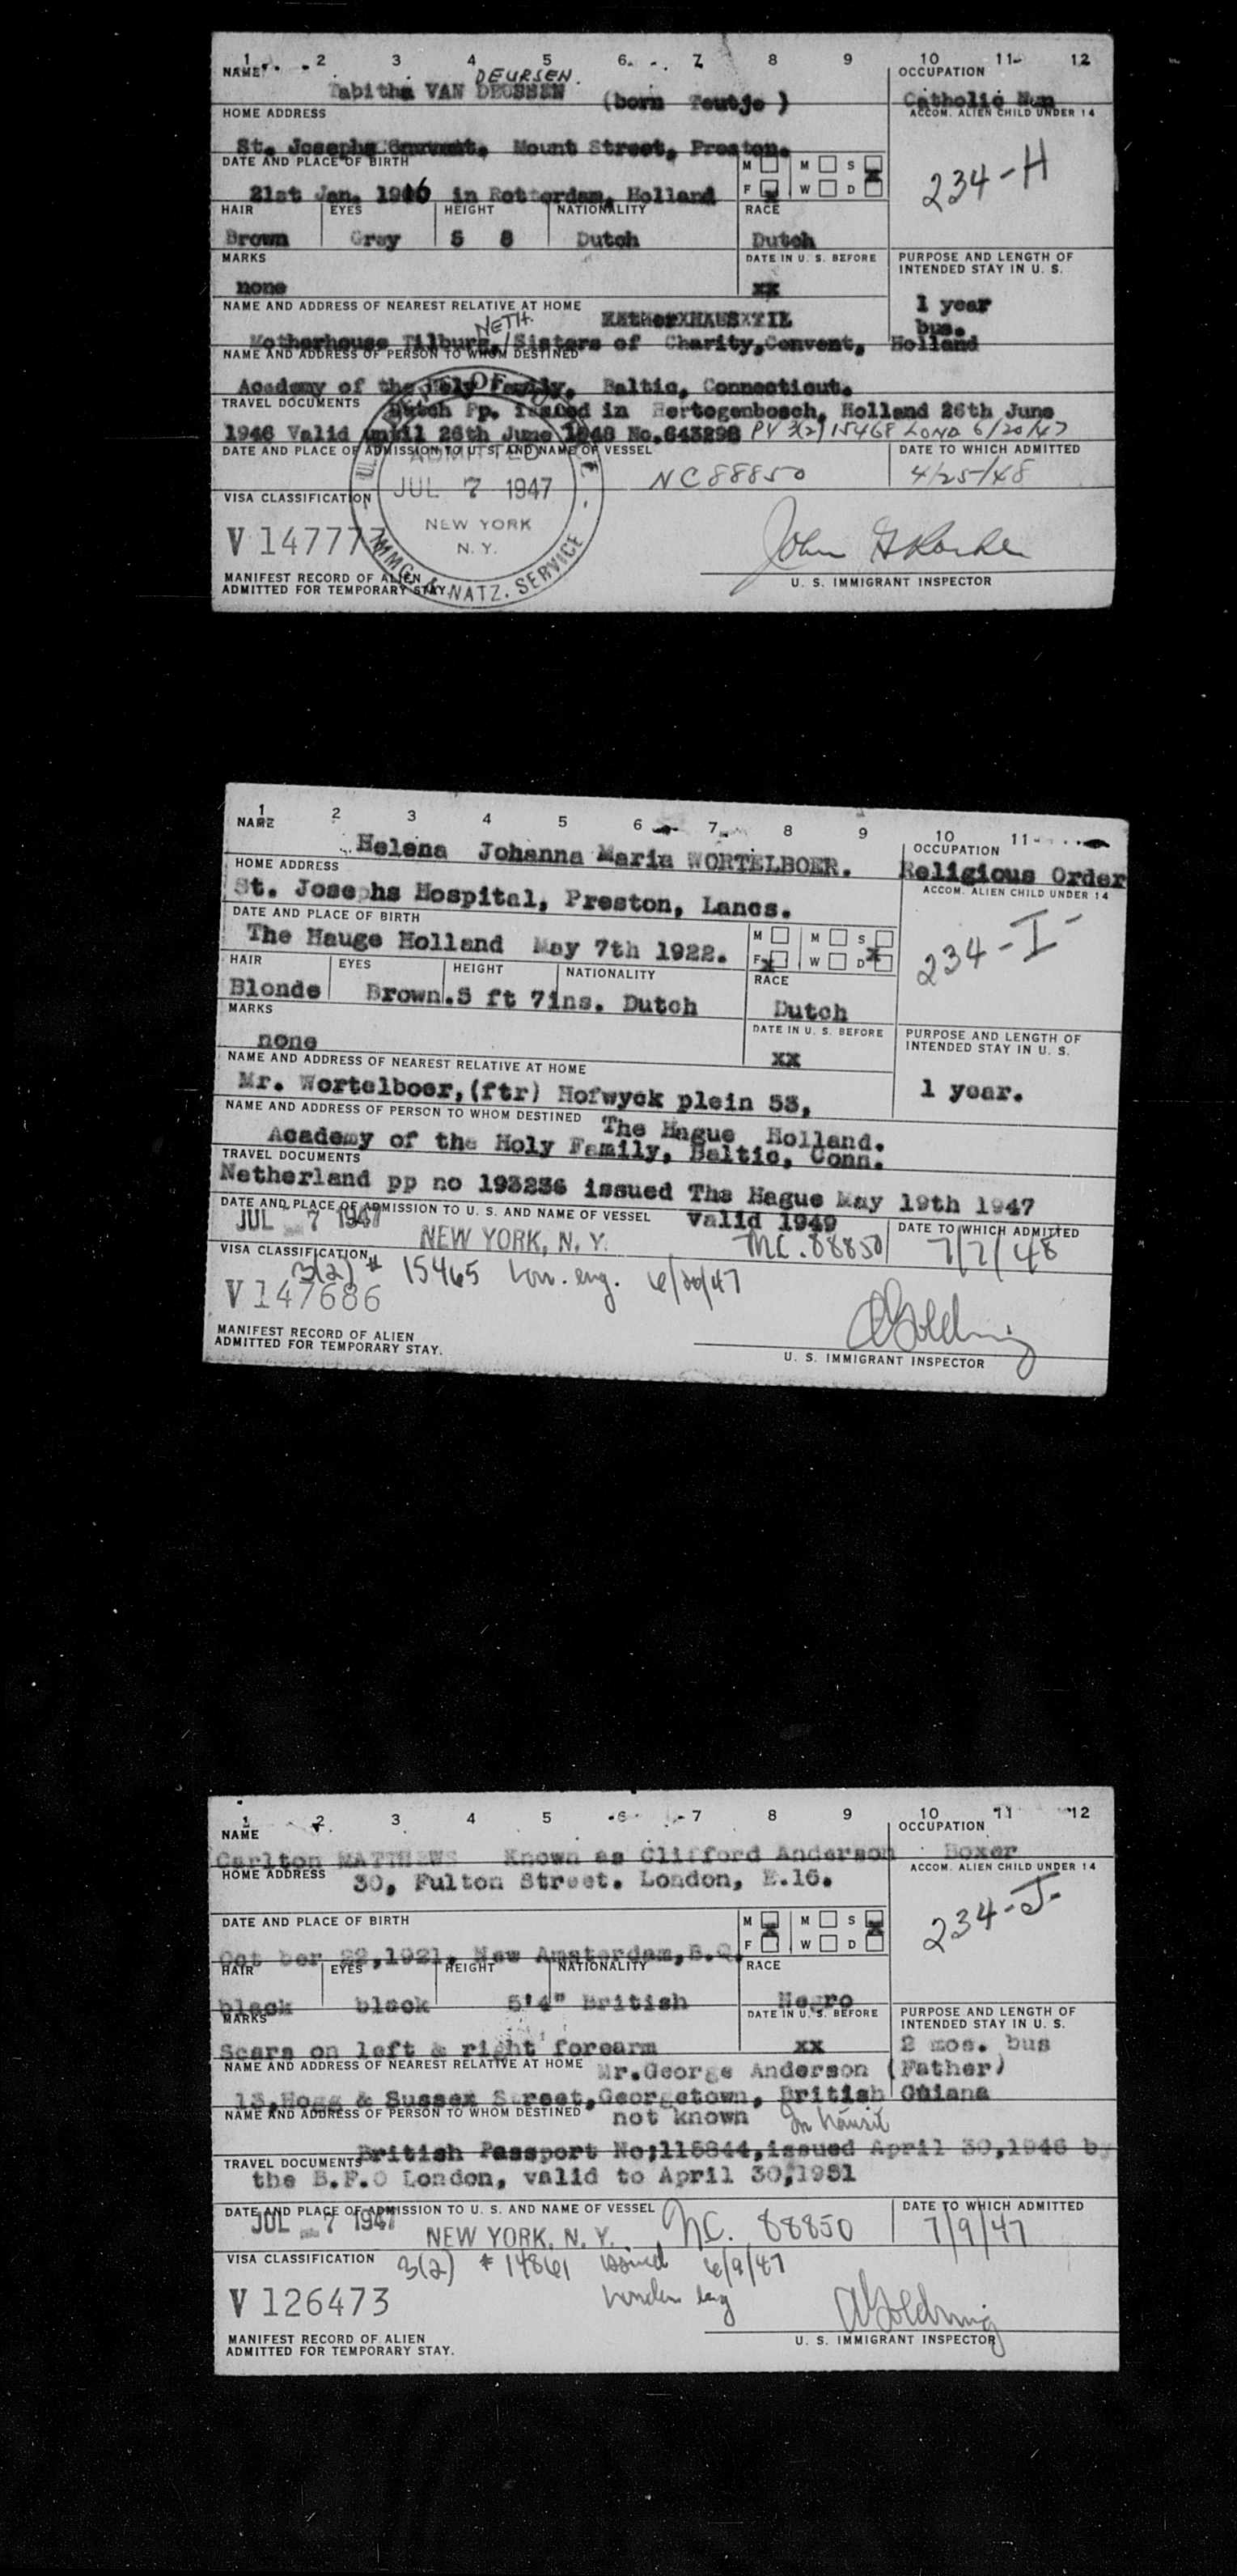 1 2 3 4 5 6 7 8 9 10 11 12
NAME OCCUPATION
DEURSEN.
Tabitha VAN DEOSSEN (born Teutje ) Catholic Nun
HOME ADDRESS ACCOM. ALIEN CHILD UNDER 14
St. Josephs Convent. Mount Street, Preston.
DATE AND PLACE OF BIRTH M M S
21st Jan. 1916 in Rotterdam, Holland F W D 234-H
HAIR EYES HEIGHT NATIONALITY RACE
Brown Gray 5 8 Dutch Dutch
MARKS DATE IN U. S. BEFORE PURPOSE AND LENGTH OF
INTENDED STAY IN U. S.
none xx
NAME AND ADDRESS OF NEAREST RELATIVE AT HOME 1 year
NETH. bus.
Motherhouse Tilburg,/Sisters of Charity,Convent, Holland
NAME AND ADDRESS OF PERSON TO WHOM DESTINED
Academy of the Holy Family, Baltic, Connecticut.
TRAVEL DOCUMENTS Dutch Pp. Issued in Hertogenbosch, Holland 26th June
1946 Valid until 26th June 1948 No.643298 PV 3(2) 15468 LOND 6/20/47
DATE AND PLACE OF ADMISSION TO U. S. AND NAME OF VESSEL DATE TO WHICH ADMITTED
ADMITTED
NC88850 4/25/48
JUL 7 1947
VISA CLASSIFICATION
NEW YORK
N. Y.
IMMG. & NATZ. SERVICE
V 147777
MANIFEST RECORD OF ALIEN
ADMITTED FOR TEMPORARY STAY.
U. S. IMMIGRANT INSPECTOR
1 2 3 4 5 6 7 8 9 10 11
NAME OCCUPATION
Helena Johanna Maria WORTELBOER. Religious Order
HOME ADDRESS ACCOM. ALIEN CHILD UNDER 14
St. Josephs Hospital, Preston, Lancs.
DATE AND PLACE OF BIRTH M M S
The Hauge Holland May 7th 1922. F W D 234-I-
HAIR EYES HEIGHT NATIONALITY RACE
Blonde Brown.5 ft 7ins. Dutch Dutch
MARKS DATE IN U. S. BEFORE PURPOSE AND LENGTH OF
INTENDED STAY IN U. S.
none xx
NAME AND ADDRESS OF NEAREST RELATIVE AT HOME
Mr. Wortelboer,(ftr) Hofwyck plein 53, 1 year.
NAME AND ADDRESS OF PERSON TO WHOM DESTINED The Hague Holland.
Academy of the Holy Family, Baltic, Conn.
TRAVEL DOCUMENTS
Netherland pp no 193236 issued The Hague May 19th 1947
DATE AND PLACE OF ADMISSION TO U. S. AND NAME OF VESSEL valid 1949 DATE TO WHICH ADMITTED
JUL 7 1947 NEW YORK, N. Y. NC. 88850 7/7/48
VISA CLASSIFICATION
3(2) # 15465 Lon. eng. 6/20/47
V 147686
MANIFEST RECORD OF ALIEN
ADMITTED FOR TEMPORARY STAY.
A Goldring
U. S. IMMIGRANT INSPECTOR
1 2 3 4 5 6 7 8 9 10 11 12
NAME OCCUPATION
Carlton MATTHEWS Known as Clifford Anderson Boxer
HOME ADDRESS 30, Fulton Street. London, E.16. ACCOM. ALIEN CHILD UNDER 14
DATE AND PLACE OF BIRTH M M S
234-J-
F W D
Oct ber 22,1921, New Amsterdam,B.G.
HAIR EYES HEIGHT NATIONALITY RACE
black black 5'4" British Negro
MARKS DATE IN U. S. BEFORE PURPOSE AND LENGTH OF
INTENDED STAY IN U. S.
Scars on left & right forearm xx 2 mos. bus
NAME AND ADDRESS OF NEAREST RELATIVE AT HOME Mr.George Anderson (Father)
13,Hogg & Sussex Street,Georgetown, British Guiana
NAME AND ADDRESS OF PERSON TO WHOM DESTINED not known In transit
British Passport No;115844,issued April 30,1946 by
TRAVEL DOCUMENTS
the B.F.O London, valid to April 30,1951
DATE AND PLACE OF ADMISSION TO U. S. AND NAME OF VESSEL DATE TO WHICH ADMITTED
JUL 7 1947 NEW YORK, N. Y. NC. 88850 7/9/47
VISA CLASSIFICATION 3(2) # 14861 issued 6/9/47
London eng
V 126473
A Goldring
MANIFEST RECORD OF ALIEN
ADMITTED FOR TEMPORARY STAY.
U. S. IMMIGRANT INSPECTOR